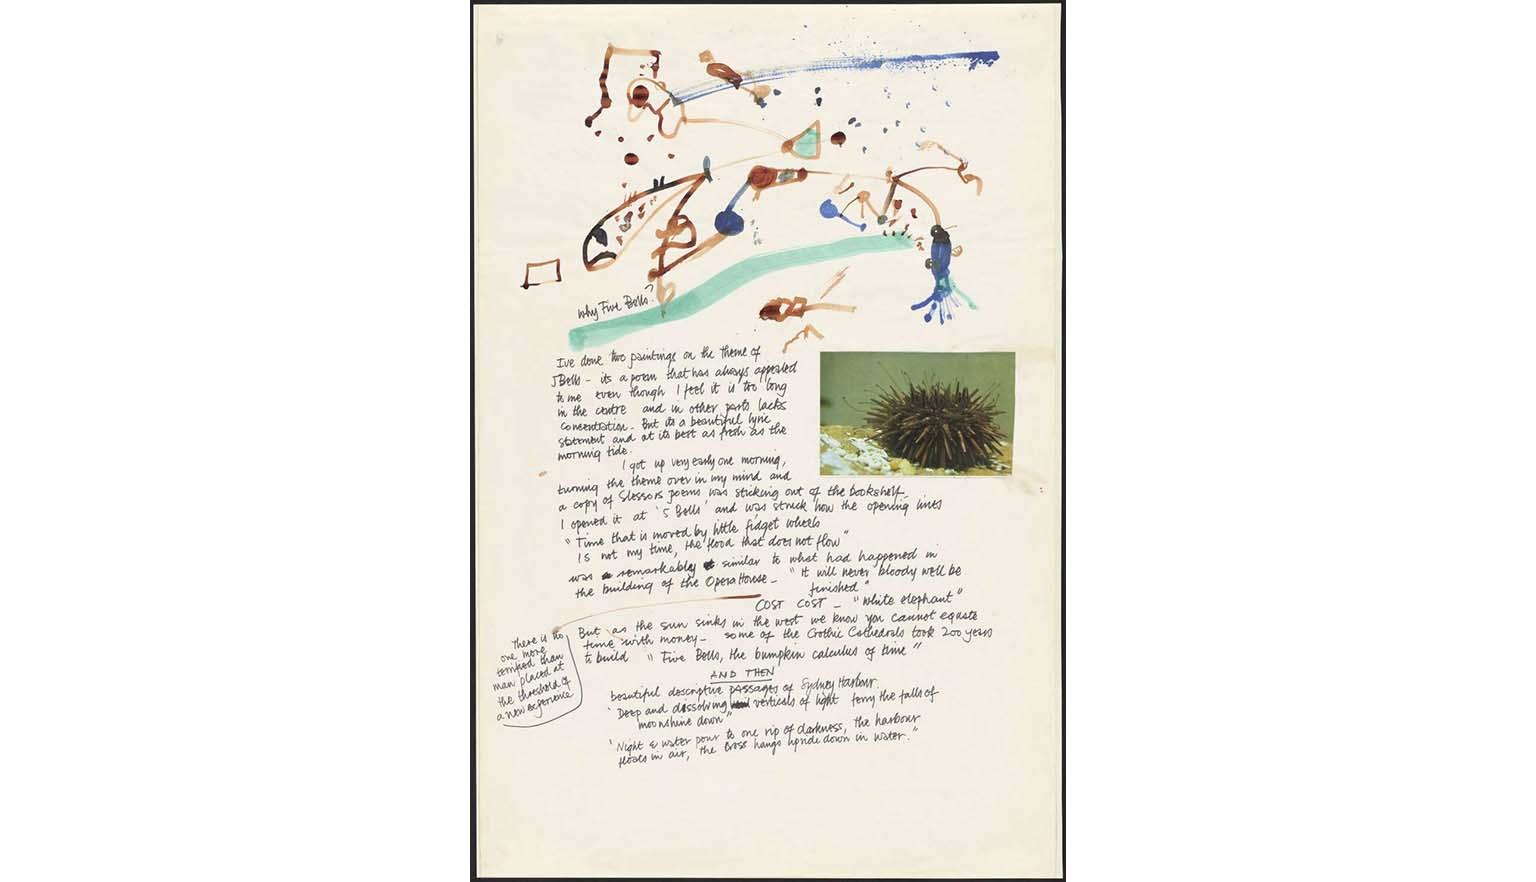 Why Five Bells?
I've done two paintings on the theme of
5 Bells - its a poem that has always appealed
to me even though I feel it is too long
in the centre and in other parts lacks
concentration. But its a beautiful lyric
statement and at its best as fresh as the
morning tide.
I got up very early one morning,
turning the theme over in my mind and
a copy of Slessors poems was sticking out of the bookshelf.
I opened it at '5 Bells' and was struck how the opening lines
"Time that is moved by little fidget wheels
Is not my time, the flood that does not flow"
was remarkably similar to what had happened in
the building of the Opera House - "it will never bloody well be
finished"
COST COST - "white elephant"
But as the sun sinks in the west we know you cannot equate
time with money - some of the Gothic Cathedrals took 200 years
to build "Five Bells, the bumpkin calculus of time"
There is no
one more
terrified than
man placed at
the threshold of
a new experience
AND THEN
beautiful descriptive passages of Sydney Harbour.
'Deep and dissolving verticals of light ferry the falls of
moonshine down"
'Night & water pour to one rip of darkness, the harbour
floats in air, the Cross hangs upside down in water."